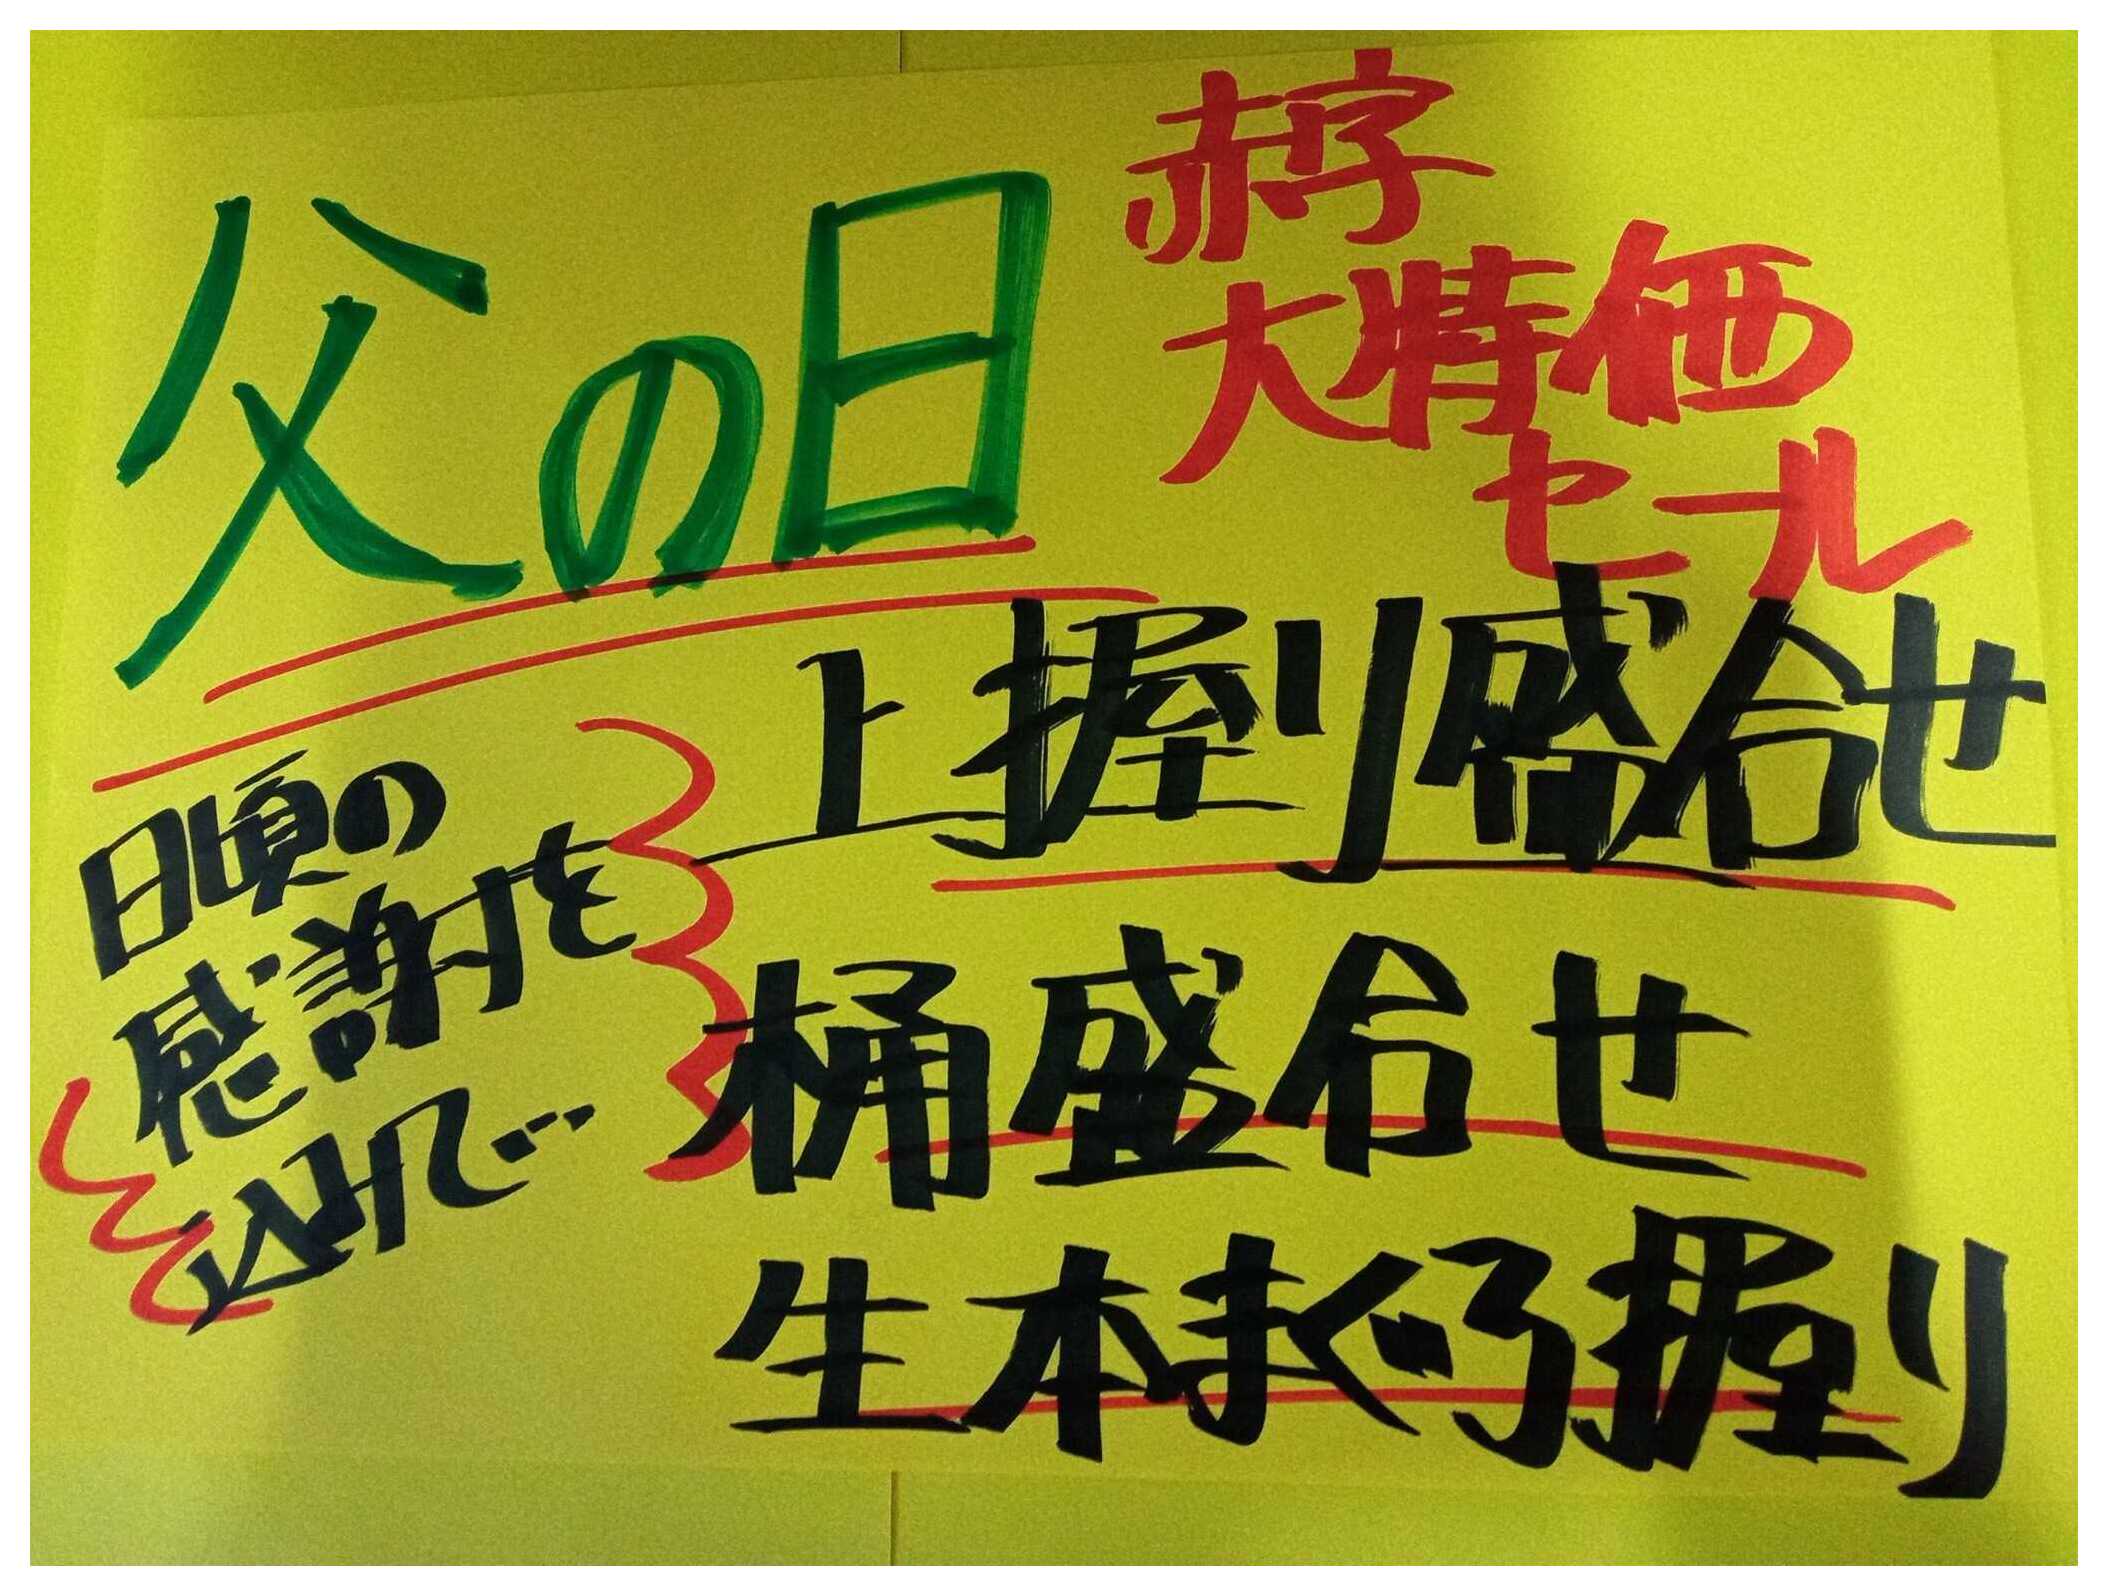 父の日
赤字
大特価
セール
日頃の
感謝を
込めて…
上握り盛合せ
桶盛合せ
生本まぐろ握り